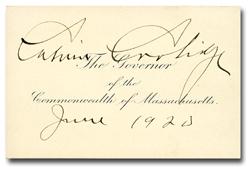 Calvin Coolidge
The Governor
of the
Commonwealth of Massachusetts.
June 1920